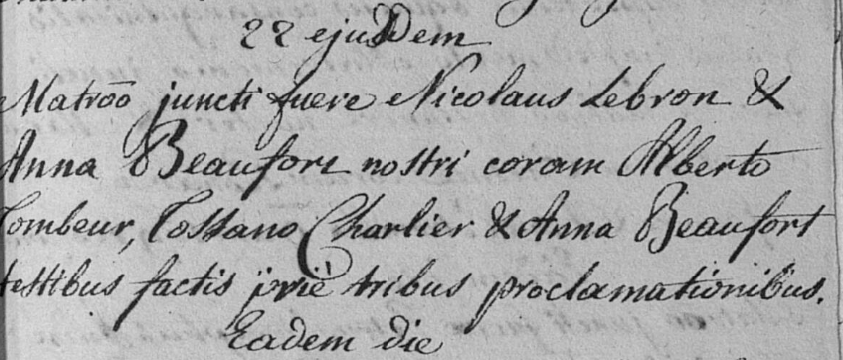 22 ejusdem
Matroō juncti fuere Nicolaus Lebron &
Anna Beaufort nostri coram Alberto
Tombeur, Tossano Charlier & Anna Beaufort
testibus factis priè tribus proclamationibus.
Eadem die